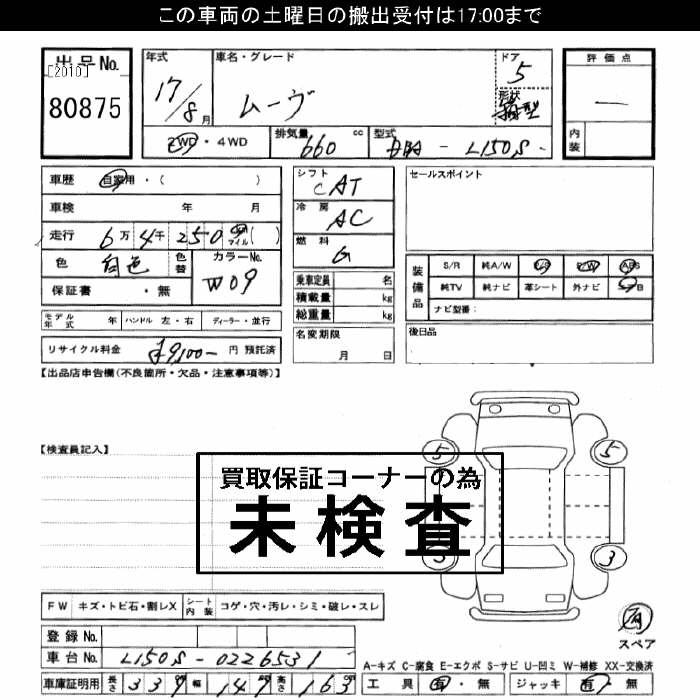 この車両の土曜日の搬出受付は17:00まで
出品No.
[2010]
80875
年式
17/8月
車名・グレード
ムーヴ
ドア
5
形状
箱型
評価点
—
内装
2WD・4WD
排気量
660 cc
型式
DBA - L150S -
車歴 自家用・( )
車検 年 月
走行 6万4千250 km マイル( )
色 白色 色替
カラーNo.
W09
保証書 ・無
シフト
CAT
冷房
AC
燃料
G
乗車定員 名
積載量 kg
総重量 kg
名変期限
月 日
セールスポイント
装備品
S/R 純A/W P/S P/W ABS
純TV 純ナビ 革シート 外ナビ S/B
ナビ型番:
後日品
モデル年式 年 ハンドル 左・右 ディーラー・並行
リサイクル料金 ¥9,100- 円 預託済
【出品店申告欄(不良箇所・欠品・注意事項等)】
【検査員記入】
買取保証コーナーの為
未検査
5
5
3
3
有
スペア
FW キズ・トビ石・割レX シート内装 コゲ・穴・汚レ・シミ・破レ・スレ
登録No.
車台No. L150S-0226531
車庫証明用 長さ 339 幅 147 高さ 163
A-キズ C-腐食 E-エクボ S-サビ U-凹ミ W-補修 XX-交換済
工具 有・無 ジャッキ 有・無